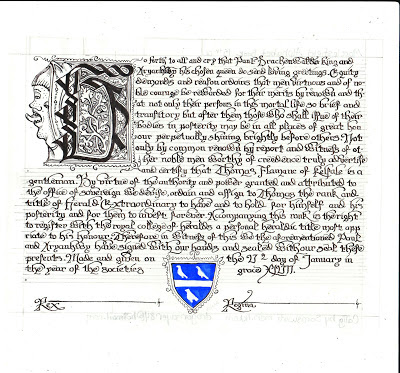 o forth to all and cry that Paul Drachenwalds king and
Aryanhwy his chosen queen do send loving greetings. Equity
demands and reason ordains that men virtuous and of no
ble courage be rewarded for their merits by renown and th
at not only their persons in this mortal life so brief and
transitory but after them those who shall issue of their
bodies in posterity may be in all places of great hon
our perpetually shining brightly before others. Not
only by common renown by report and witness of ot
her noble men worthy of credence truly advertise
and certify that Thomas Flamanc of Kelsale is a
gentleman. By virtue of the authority and power granted and attributed to
the office of sovereign we devise, ordain and assign to Thomas the rank and
title of Herald Extraordinary to have and to hold for himself and his
posterity and for them to invest forever. Accompanying this mark is the right
to register with the royal college of heralds a personal heraldic title most app
riate to his honour. Therefore in witness of this we the aforementioned Paul
and Aryanhwy have signed with our hands and sealed with our seal these
presents. Made and given on the day of January in
the year of the societies grace
Rex Regina